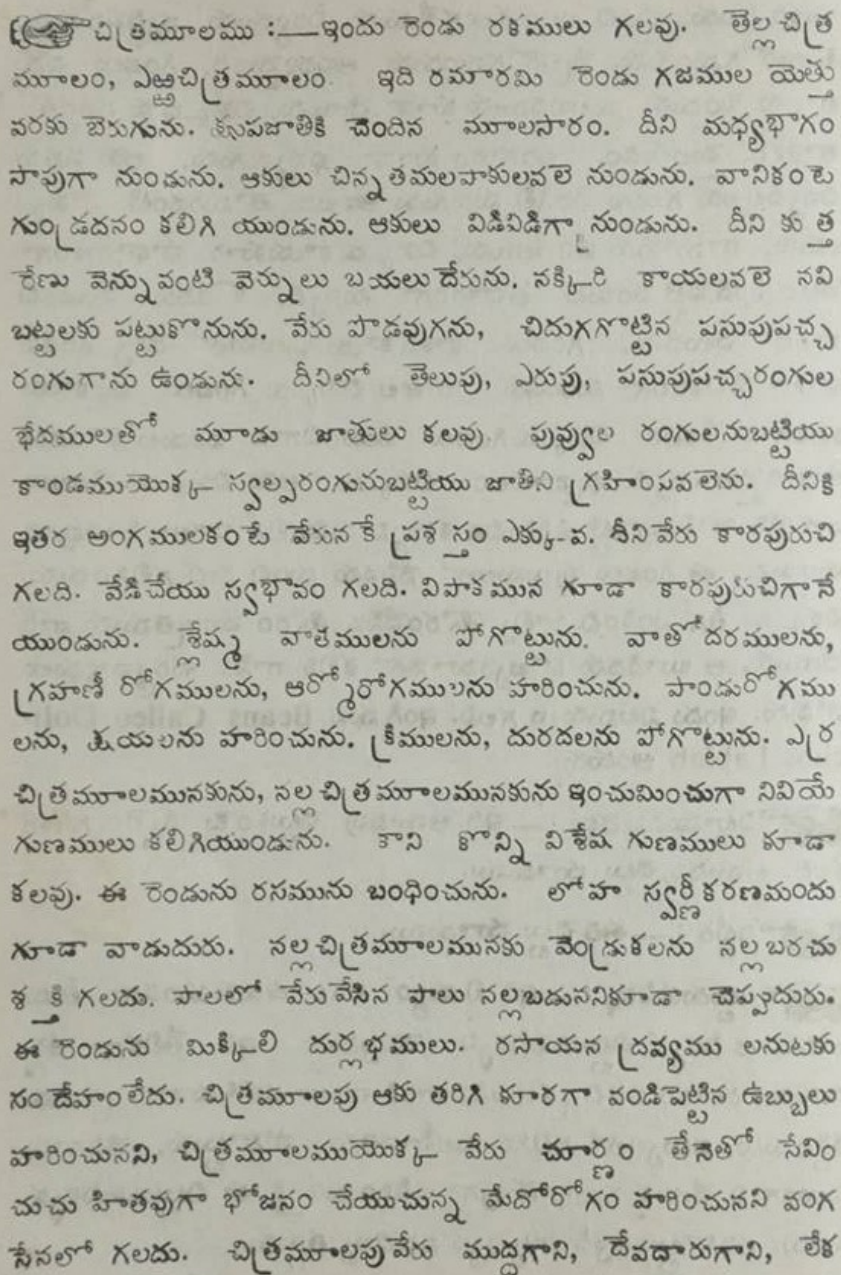 చిత్రమూలము :—ఇందు రెండు రకములు గలవు. తెల్ల చిత్ర
మూలం, ఎఱ్ఱచిత్రమూలం. ఇది రమారమి రెండు గజముల యెత్తు
వరకు బెరుగును. క్షుపజాతికి చెందిన మూలసారం. దీని మధ్యభాగం
సాపుగా నుండును. ఆకులు చిన్న తమలపాకులవలె నుండును. వానికంటె
గుండ్రదనం కలిగి యుండును. ఆకులు విడివిడిగా నుండును. దీని కుత్త
రేణు వెన్నువంటి వెన్నులు బయలుదేరును. నక్కిరి కాయలవలె నవి
బట్టలకు పట్టుకొనును. వేరు పొడవుగను, చిదుగగొట్టిన పసుపుపచ్చ
రంగుగాను ఉండును. దీనిలో తెలుపు, ఎరుపు, పసుపుపచ్చరంగుల
భేదములతో మూడు జాతులు కలవు. పువ్వుల రంగులనుబట్టియు
కాండముయొక్క స్వల్పరంగునుబట్టియు జాతిని గ్రహింపవలెను. దీనికి
ఇతర అంగములకంటే వేరునకే ప్రశస్తం ఎక్కువ. దీనివేరు కారపురుచి
గలది. వేడిచేయు స్వభావం గలది. విపాకమున గూడా కారపురుచిగానే
యుండును. శ్లేష్మ వాతములను పోగొట్టును. వాతోదరములను,
గ్రహణీ రోగములను, ఆర్శోరోగములను హరించును. పాండురోగము
లను, క్షయలను హరించును. క్రిములను, దురదలను పోగొట్టును. ఎర్ర
చిత్రమూలమునకును, నల్లచిత్రమూలమునకును ఇంచుమించుగా నివియే
గుణములు కలిగియుండును. కాని కొన్ని విశేష గుణములు కూడా
కలవు. ఈ రెండును రసమును బంధించును. లోహ స్వర్ణీకరణమందు
గూడా వాడుదురు. నల్లచిత్రమూలమునకు వెండ్రుకలను నల్లబరచు
శక్తి గలదు. పాలలో వేరువేసిన పాలు నల్లబడుననికూడా చెప్పుదురు.
ఈ రెండును మిక్కిలి దుర్లభములు. రసాయన ద్రవ్యము లనుటకు
సందేహంలేదు. చిత్రమూలపు ఆకు తరిగి కూరగా వండిపెట్టిన ఉబ్బులు
హరించునని, చిత్రమూలముయొక్క వేరు చూర్ణం తేనెతో సేవిం
చుచు హితవుగా భోజనం చేయుచున్న మేదోరోగం హరించునని వంగ
సేనలో గలదు. చిత్రమూలపువేరు ముద్దగాని, దేవదారుగాని, లేక